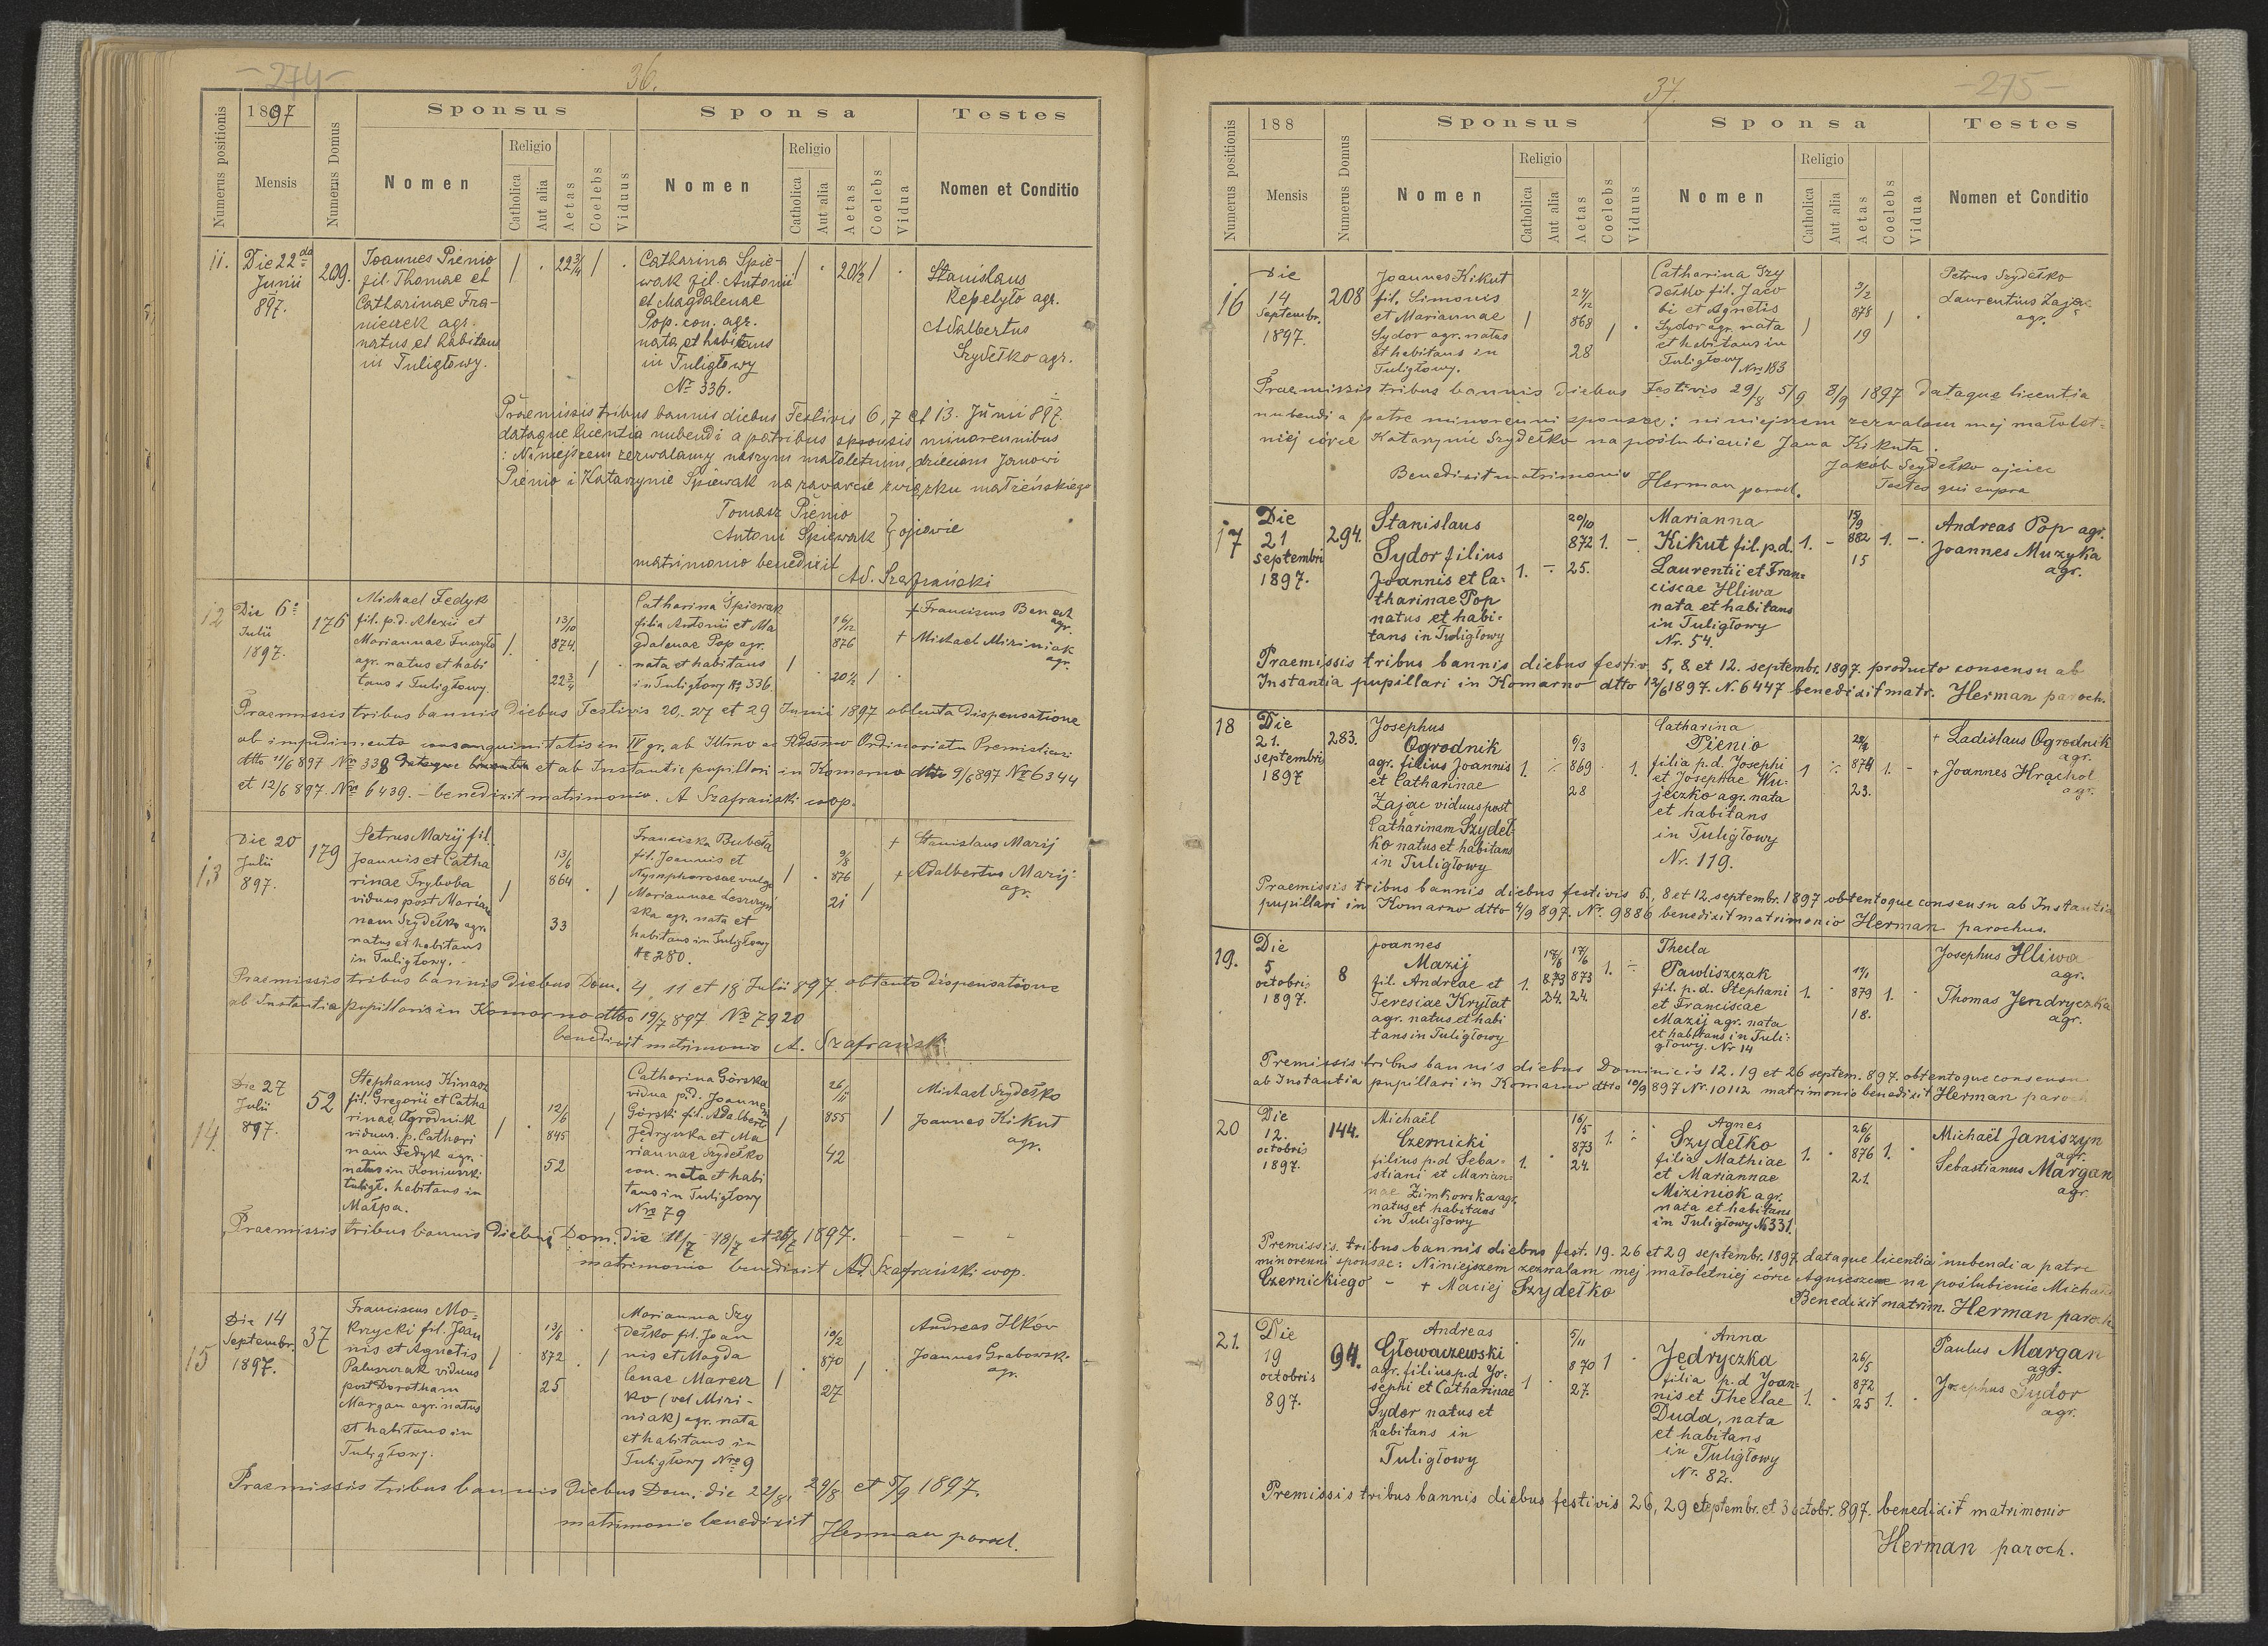 -274-
36.
Numerus positionis
1897
Mensis
Numerus Domus
Sponsus
Nomen
Religio
Catholica
Aut alia
Aetas
Coelebs
Viduus
Sponsa
Nomen
Religio
Catholica
Aut alia
Aetas
Coelebs
Vidua
Testes
Nomen et Conditio
11.
Die 22da
Junii
897.
209.
Joannes Pienio
fil. Thomae et
Catharinae Fra-
agr.
natus et habitans
in Tuligłowy.
/ . 22 3/4 / .
Catharina Śpie-
wak fil. Antonii
et Magdalenae
Pop. con. agr.
nata et habitans
in Tuligłowy
No 336.
/ . 20 1/2 / .
Stanislaus
Repelyło agr.
Adalbertus
Szydełko agr.
Praemissis tribus bannis diebus Festivis 6, 7 et 13. Junii 897.
dataque licentia nubendi a patribus sponsis minorennibus
: Niniejszem zezwalamy naszym małoletnim dzieciom Janowi
Pienio i Katarzynie Śpiewak na zawarcie związku małżeńskiego
Tomasz Pienio
Antoni Śpiewak } ojcowie
matrimonio benedixit
Ad. Szafrański
12
Die 6a
Julii
1897.
176
Michael Fedyk
fil. p.d. Alexii et
Mariannae
agr. natus et habi
tans s Tuligłowy.
/.
13/10
874.
22 3/4
/ .
Catharina Śpiewak
filia Antonii et Ma
gdalenae Pop agr.
nata et habitans
in Tuligłowy No 336.
/
16/12
876
20 1/2 / .
+ Franciscus Benach
agr.
+ Michael Miziniak
agr.
Praemissis tribus bannis diebus Festivis 20, 27 et 29 Junii 1897 obtenta dispensatione
ab impedimento consanquinitatis in IV gr. ab Illmo ac Rdssmo Ordinariatu Premisliensi
dtto 11/6 897 Nro 338 et ab Instantie pupillari in Komarno dtto 9/6 897 No 6344
et 12/6 897 Nro 6439. - benedixit matrimonio. A Szafrański coop.
13
Die 20
Julii
897.
179
Petrus Mazij fil.
Joannis et Catha
rinae Tryboba
viduus post Marian
nam Szydełko agr.
natus et habitans
in Tuligłowy. -
/
13/6
864
33
. /
Franciska Bubeła
fil. Joannis et
Nymphorosae vulgo
Mariannae Leszczyń
ska agr. nata et
habitans in Tuligłowy
No 280.
/ .
9/8
876
21
/
+ Stanislaus Mazij
+ Adalbertus Mazij
agr.
Praemissis tribus bannis diebus Dom. 4, 11 et 18 Julii 897. obtento dispensatione
ab Instantia pupillaris in Komarno dtto 19/7 897 No 7920
benedixit matrimonio A. Szafrański
14.
Die 27
Julii
897.
52
Stephanus Kinasz
fil. Gregorii et Catha
rinae Ogrodnik
viduus. p. Cathari
nam Fedyk agr.
natus in Koniuszki
tuligł. habitans in
Małpa.
/ .
12/6
845
52
/
Catharina Górska
vidua p.d. Joannem
Górski fil. Adalberti
Jędryczka et Ma
riannae Szydełko
con. nata et habi
tans in Tuligłowy
Nro 79
/
26/11
855
42
/
Michael Szydełko
Joannes Kikut
agr.
Praemissis tribus bannis diebus Dom. die 11/7 18/7 et 25/7 1897.
matrimonio benedixit Ad. Szafrański coop.
15
Die 14
Septembr.
1897.
37
Franciscus Mo-
krzycki fil. Joan
nis et Agnetis
Paluszczak viduus
post Dorotham
Margan agr. natus
et habitans in
Tuligłowy.
/
13/6
872
25
. /
Marianna Szy
dełko fil. Joan
nis et Magda
lenae Marcz
ko (vel Mizi-
niak) agr. nata
et habitans in
Tuligłowy Nro 9
/
10/2
870
27
. /
Andreas Ilków
Joannes Grabowsk.
agr.
Praemissis tribus bannis diebus Dom. die 22/8, 29/8 et 5/9 1897.
matrimonio benedixit
Herman paroch.
37.
-275-
Numerus positionis
188
Mensis
Numerus Domus
Sponsus
Nomen
Religio
Catholica
Aut alia
Aetas
Coelebs
Viduus
Sponsa
Nomen
Religio
Catholica
Aut alia
Aetas
Coelebs
Vidua
Testes
Nomen et Conditio
16
Die
14
Septembr.
1897.
208
Joannes Kikut
fil. Simonis
et Mariannae
Sydor agr. natus
et habitans in
Tuligłowy.
/
24/12
868
28
/ .
Catharina Szy
dełko fil. Jaco
bi et Agnetis
Sydor agr. nata
et habitans in
Tuligłowy Nro 183
/
3/2
878
19
/ .
Petrus Szydełko
Laurentius Zając
agr.
Praemissis tribus bannis diebus Festivis 29/8 5/9 8/9 1897 dataque licentia
nubendi a patre minorenni sponsae: niniejszem zezwalam mej małolet-
niej córce Katarzynie Szydełko na poślubienie Jana Kikuta.
Jakób Szydełko ojciec
Benedixit matrimonio Herman paroch.
Testes qui supra
17
Die
21
septembri
1897.
294.
Stanislaus
Sydor filius
Joannis et Ca-
tharinae Pop
natus et habi-
tans in Tuligłowy
1. -
20/10
872
25.
1. -
Marianna
Kikut fil. p.d.
Laurentii et Fran-
ciscae Hliwa
nata et habitans
in Tuligłowy
Nr. 54.
1. -
15/9
882
15
1. -
Andreas Pop agr.
Joannes Muzyka
agr.
Praemissis tribus bannis diebus festiv. 5, 8 et 12. septembr. 1897. producto consensu ab
Instantia pupillari in Komarno dtto 12/6 1897. N. 6447 benedixit matr. Herman paroch.
18
Die
21.
septembri
1897
283.
Josephus
Ogrodnik
agr. filius Joannis
et Catharinae
Zając viduus post
Catharinam Szydeł-
ko natus et habitans
in Tuligłowy
1. -
6/3
869
28
. 1.
Catharina
Pienio
filia p.d. Josephi
et Josephae Wu-
jeczko agr. nata
et habitans
in Tuligłowy
Nr. 119.
1 -
874
23.
1. -
+ Ladislaus Ogrodnik
agr.
+ Joannes Hrąchol
agr.
Praemissis tribus bannis diebus festivis 5., 8 et 12. septembr. 1897 obtentoque consensu ab Instantia
pupillari in Komarno dtto 4/9 897. Nr. 9886 benedixit matrimonio Herman parochus.
19.
Die
5
octobris
1897.
8
Joannes
Mazij
fil. Andreae et
Teresiae Kryłat
agr. natus et habi
tans in Tuligłowy
1.
17/6 17/6
873 873
24. 24.
1. -
Thecla
Pawliszczak
fil. p.d. Stephani
et Franciscae
Mazij agr. nata
et habitans in Tuli-
głowy. Nr 14
1. .
879
18.
1. .
Josephus Hliwa
agr.
Thomas Jendryczka
agr.
Premissis tribus bannis diebus Dominicis 12. 19 et 26 septem. 897. obtentoque consensu
ab Instantia pupillari in Komarno dtto 10/9 897 Nr. 10112 matrimonio benedixit Herman paroch
20
Die
12.
octobris
1897.
144.
Michaël
Czernicki
filius p.d Seba-
stiani et Marian-
nae Zimkowska agr.
natus et habitans
in Tuligłowy
1. .
16/5
873
24.
1. -
Agnes
Szydełko
filia Mathiae
et Mariannae
Miziniak agr.
nata et habitans
in Tuligłowy No 331.
1. .
26/6
876
21.
1. .
Michaël Janiszyn
agr.
Sebastianus Margan
agr.
Premissis tribus bannis diebus fest. 19. 26 et 29 septembr. 1897. dataque licentia nubendi a patre
minorenni sponsae: Niniejszem zezwalam mej małoletniej córce Agnieszce na poślubienie Michała
Czernickiego - + Maciej Szydełko
Benedixit matrim. Herman paroch
21.
Die
19
octobris
897.
94.
Andreas
Głowaczewski
agr. filius p.d Jo-
sephi et Catharinae
Sydor natus et
habitans in
Tuligłowy
1 .
5/11
870
27.
1 .
Anna
Jędryczka
filia p.d Joan-
nis et Theclae
Duda, nata
et habitans
in Tuligłowy
Nr. 82.
1. .
26/5
872
25
1. .
Paulus Margan
agr.
Josephus Sydor
agr.
Premissis tribus bannis diebus festivis 26, 29 septembr. et 3 octobr. 897. benedixit matrimonio
Herman paroch.